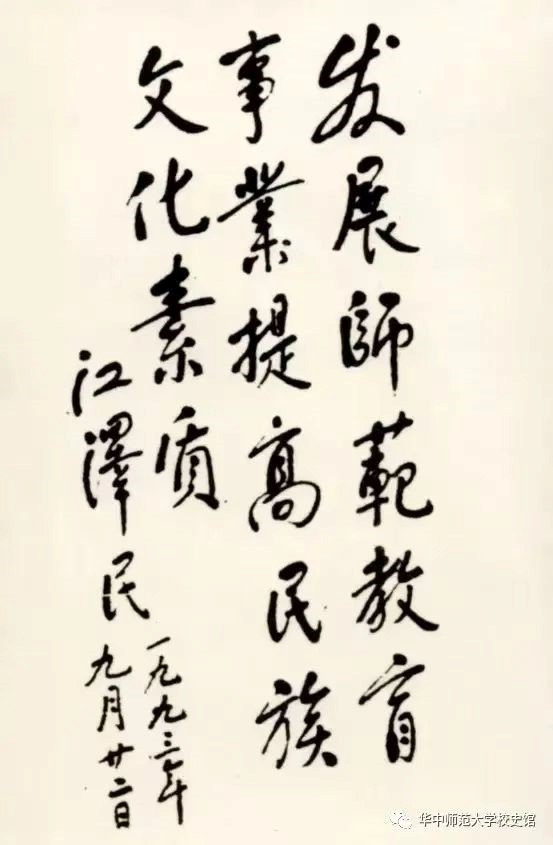 发展師範教育
事業提高民族
文化素质
江澤民
一九九三年
九月廿二日
华中师范大学校史馆